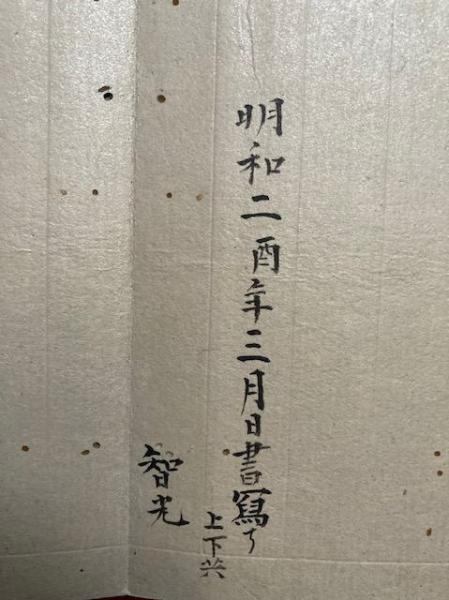 明和二酉年三月日書寫了
上下共
智光